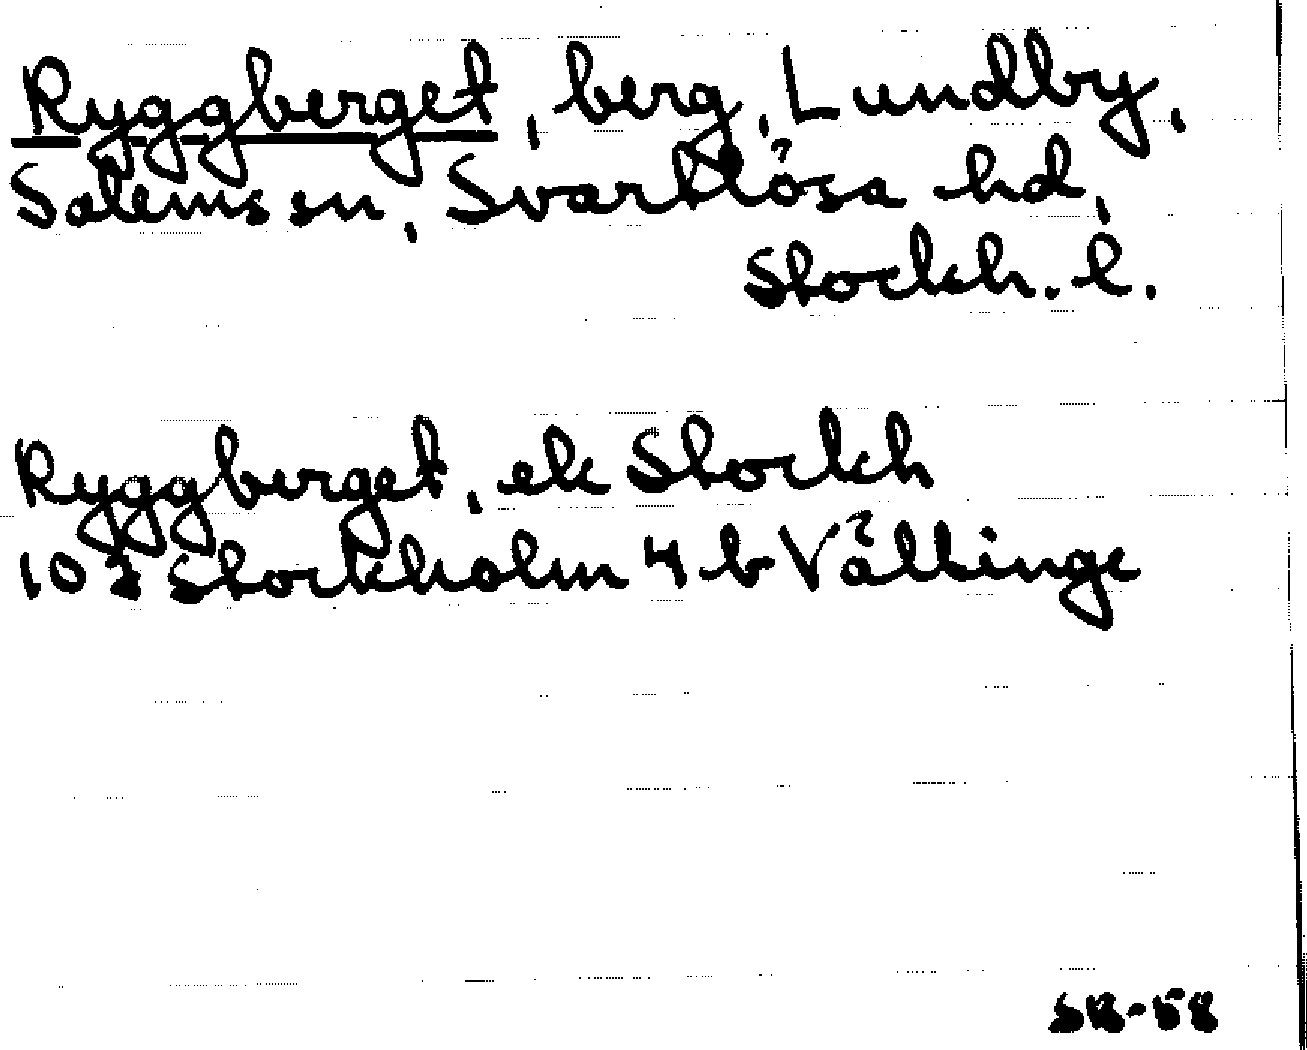 Ryggberget, berg, Lundby,
Salems sn, Svartlösa hd,
Stockh. l.
Ryggberget, ek Stockh
10 I Stockholm 4 b Vållinge